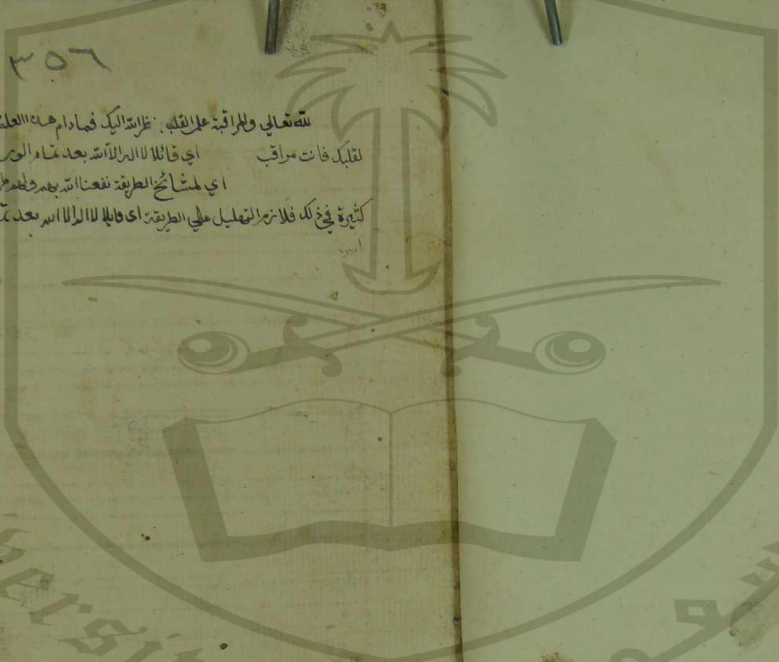 ٣٥٦
لله تعالى والمراقبة علم القلب بنظر الله اليك فمادام هذا العلم
لقلبك فانت مراقب اي قائلا لا اله الا الله بعد تمام الور
اي لمشائخ الطريقة نفعنا الله بهم ولهم
كثيرة في ذلك فلازم التهليل علي الطريقة اي قايلا لا اله الا الله بعد